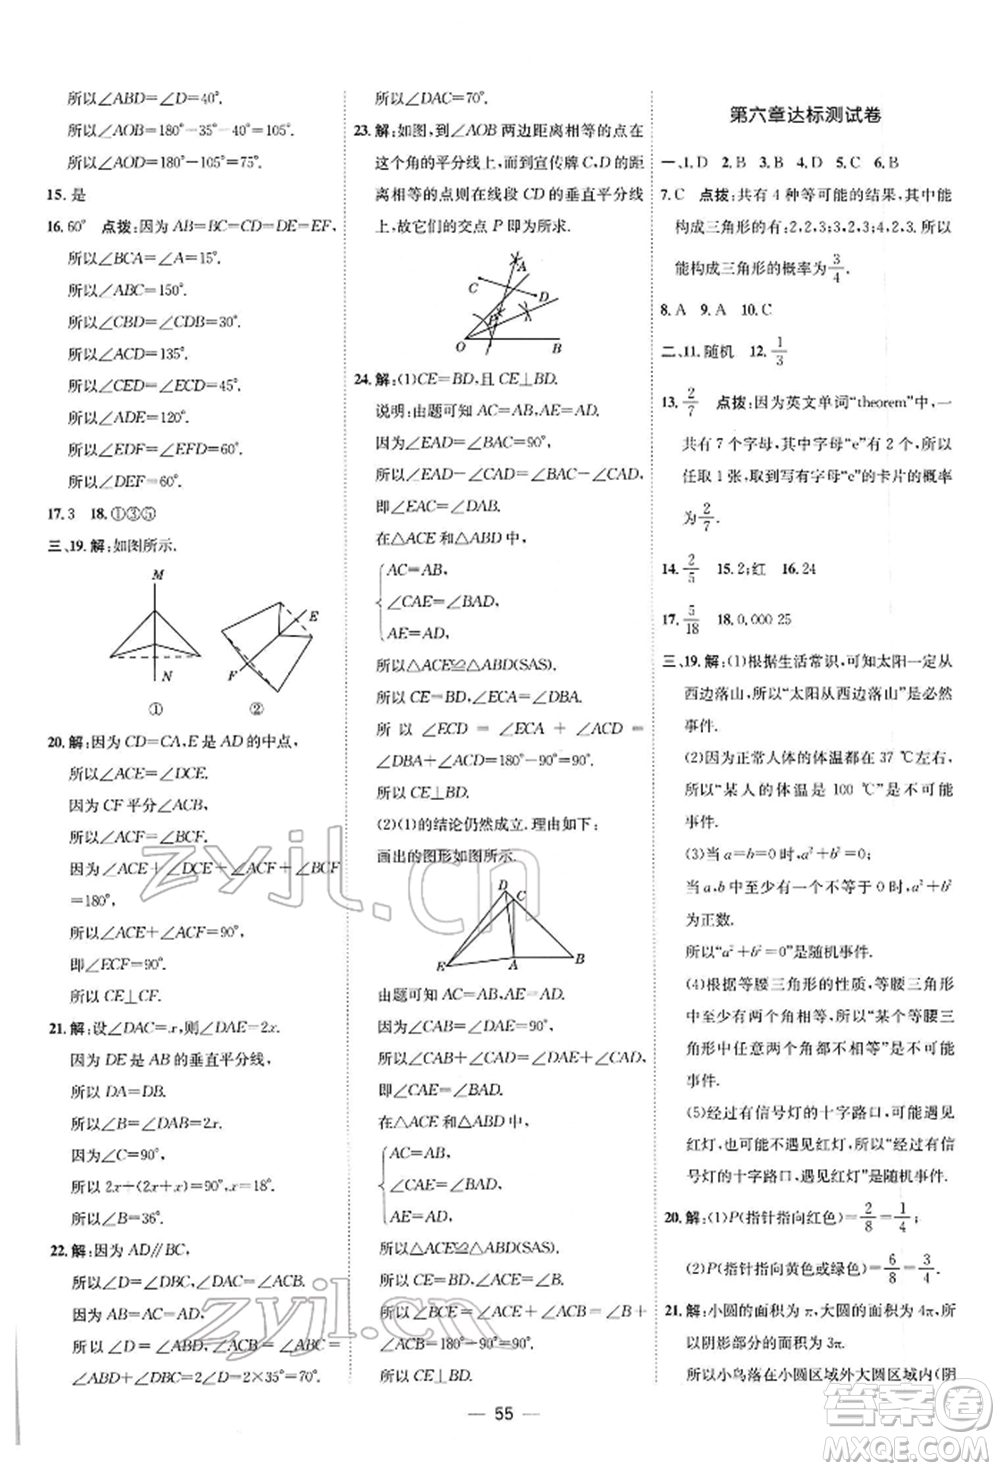 所以∠ABD=∠D=40°.
所以∠AOB=180°-35°-40°=105°.
所以∠AOD=180°-105°=75°.
15. 是
16. 60° 点拨:因为AB=BC=CD=DE=EF,
所以∠BCA=∠A=15°.
所以∠ABC=150°.
所以∠CBD=∠CDB=30°.
所以∠ACD=135°.
所以∠CED=∠ECD=45°.
所以∠ADE=120°.
所以∠EDF=∠EFD=60°.
所以∠DEF=60°.
17. 3 18. ①③⑤
三、19. 解:如图所示.
M
N
①
E
F
②
20. 解:因为CD=CA,E是AD的中点,
所以∠ACE=∠DCE.
因为CF平分∠ACB,
所以∠ACF=∠BCF.
因为∠ACE+∠DCE+∠ACF+∠BCF
=180°,
所以∠ACE+∠ACF=90°,
即∠ECF=90°.
所以CE⊥CF.
21. 解:设∠DAC=x,则∠DAE=2x.
因为DE是AB的垂直平分线,
所以DA=DB.
所以∠B=∠DAB=2x.
因为∠C=90°,
所以2x+(2x+x)=90°,x=18°.
所以∠B=36°.
22. 解:因为AD∥BC,
所以∠D=∠DBC,∠DAC=∠ACB.
因为AB=AC=AD,
所以∠D=∠ABD,∠ABC=∠ACB=
∠ABD+∠DBC=2∠D=2×35°=70°.
所以∠DAC=70°.
23. 解:如图,到∠AOB两边距离相等的点在
这个角的平分线上,而到宣传牌C,D的距
离相等的点则在线段CD的垂直平分线
上,故它们的交点P即为所求.
A
C
D
P
O
B
24. 解:(1)CE=BD,且CE⊥BD.
说明:由题可知AC=AB,AE=AD.
因为∠EAD=∠CAB=90°,
所以∠EAD-∠CAD=∠BAC-∠CAD,
即∠EAC=∠DAB.
在△ACE和△ABD中,
AC=AB,
∠CAE=∠BAD,
AE=AD,
所以△ACE≌△ABD(SAS).
所以CE=BD,∠ECA=∠DBA.
所以∠ECD=∠ECA+∠ACD=
∠DBA+∠ACD=180°-90°=90°.
所以CE⊥BD.
(2)(1)的结论仍然成立.理由如下:
画出的图形如图所示.
D
C
E
A
B
由题可知AC=AB,AE=AD.
因为∠CAB=∠DAE=90°,
所以∠CAB+∠CAD=∠DAE+∠CAD,
即∠CAE=∠BAD.
在△ACE和△ABD中,
AC=AB,
∠CAE=∠BAD,
AE=AD,
所以△ACE≌△ABD(SAS).
所以CE=BD,∠ACE=∠B.
所以∠BCE=∠ACE+∠ACB=∠B+
∠ACB=180°-90°=90°.
所以CE⊥BD.
第六章达标测试卷
一、1. D 2. B 3. B 4. D 5. C 6. B
7. C 点拨:共有4种等可能的结果,其中能
构成三角形的有:2,2,3;2,3,4;4,2,3.所以
能构成三角形的概率为3/4.
8. A 9. A 10. C
二、11. 随机 12. 1/3
13. 2/7 点拨:因为英文单词“theorem”中,一
共有7个字母,其中字母“e”有2个,所以
任取1张,取到写有字母“e”的卡片的概率
为2/7.
14. 2/5 15. 2;红 16. 24
17. 5/18 18. 0.000 25
三、19. 解:(1)根据生活常识,可知太阳一定从
西边落山,所以“太阳从西边落山”是必然
事件.
(2)因为正常人体的体温都在37 ℃左右,
所以“某人的体温是100 ℃”是不可能
事件.
(3)当a=b=0时,a²+b²=0;
当a,b中至少有一个不等于0时,a²+b²
为正数.
所以“a²+b²=0”是随机事件.
(4)根据等腰三角形的性质,等腰三角形
中至少有两个角相等,所以“某个等腰三
角形中任意两个角都不相等”是不可能
事件.
(5)经过有信号灯的十字路口,可能遇见
红灯,也可能不遇见红灯,所以“经过有信
号灯的十字路口,遇见红灯”是随机事件.
20. 解:(1)P(指针指向红色)=2/8=1/4;
(2)P(指针指向黄色或绿色)=6/8=3/4.
21. 解:小圆的面积为π,大圆的面积为4π,所
以阴影部分的面积为3π.
所以小鸟落在小圆区域外大圆区域内(阴
— 55 —
zyjl.cn
zyjl.cn
答案圈
MXQE.COM